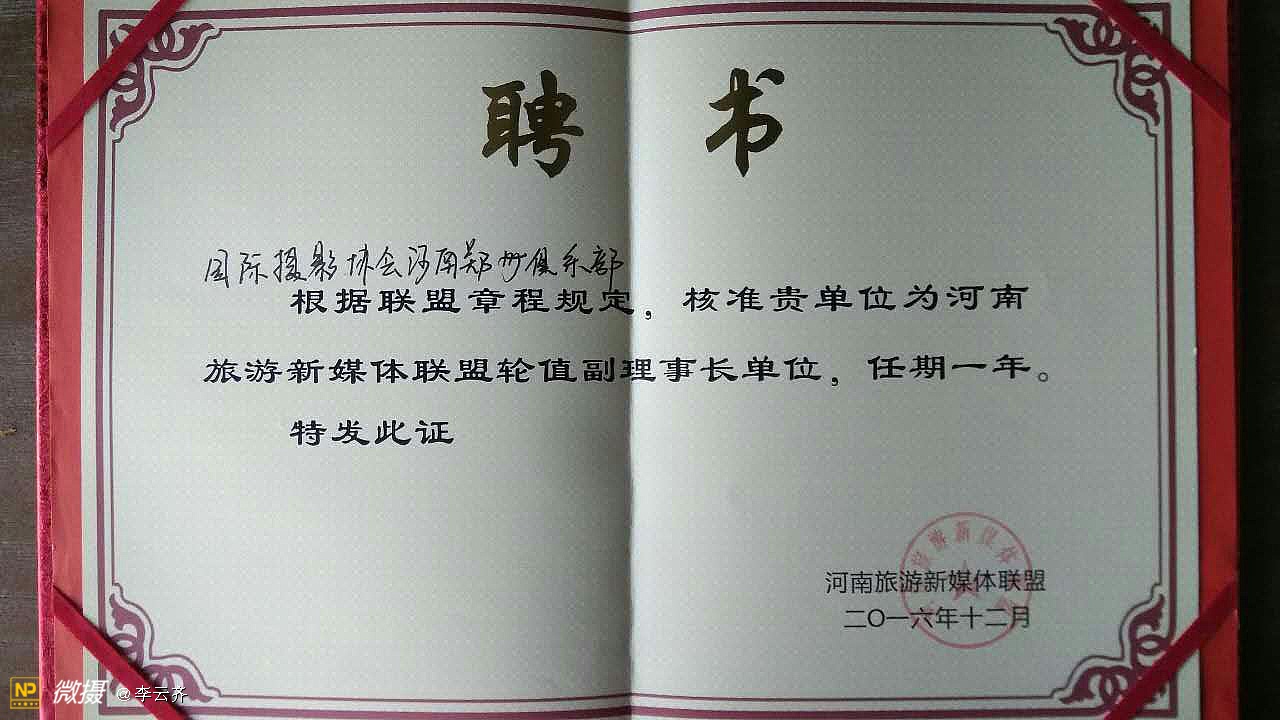 聘 书
国际摄影协会河南郑州俱乐部
根据联盟章程规定，核准贵单位为河南
旅游新媒体联盟轮值副理事长单位，任期一年。
特发此证
河南旅游新媒体联盟
二〇一六年十二月
NP 微摄 @李云齐